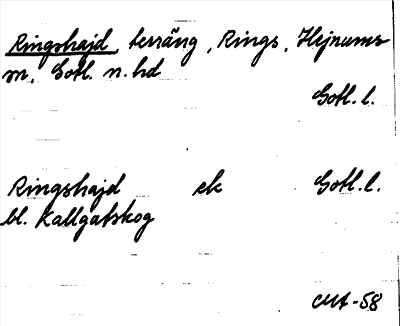 Ringshajd terräng, Rings, Hejnums
m, Gotl. n. hd
Gotl. l.
Ringshajd ek Gotl. l.
bl. Kallgatskog
-58